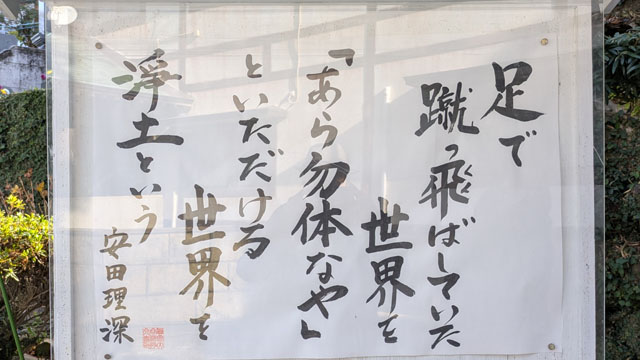 足で
蹴っ飛ばしていた
世界を
「あら勿体なや」
といただける
世界を
浄土という
安田理深